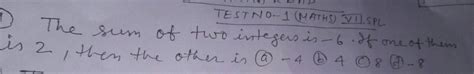 TEST NO-1 (MATHS) VII.SPL
The sum of two integers is -6. If one of them
is 2, then the other is ⓐ -4 ⓑ 4 ⓒ 8 ⓓ -8